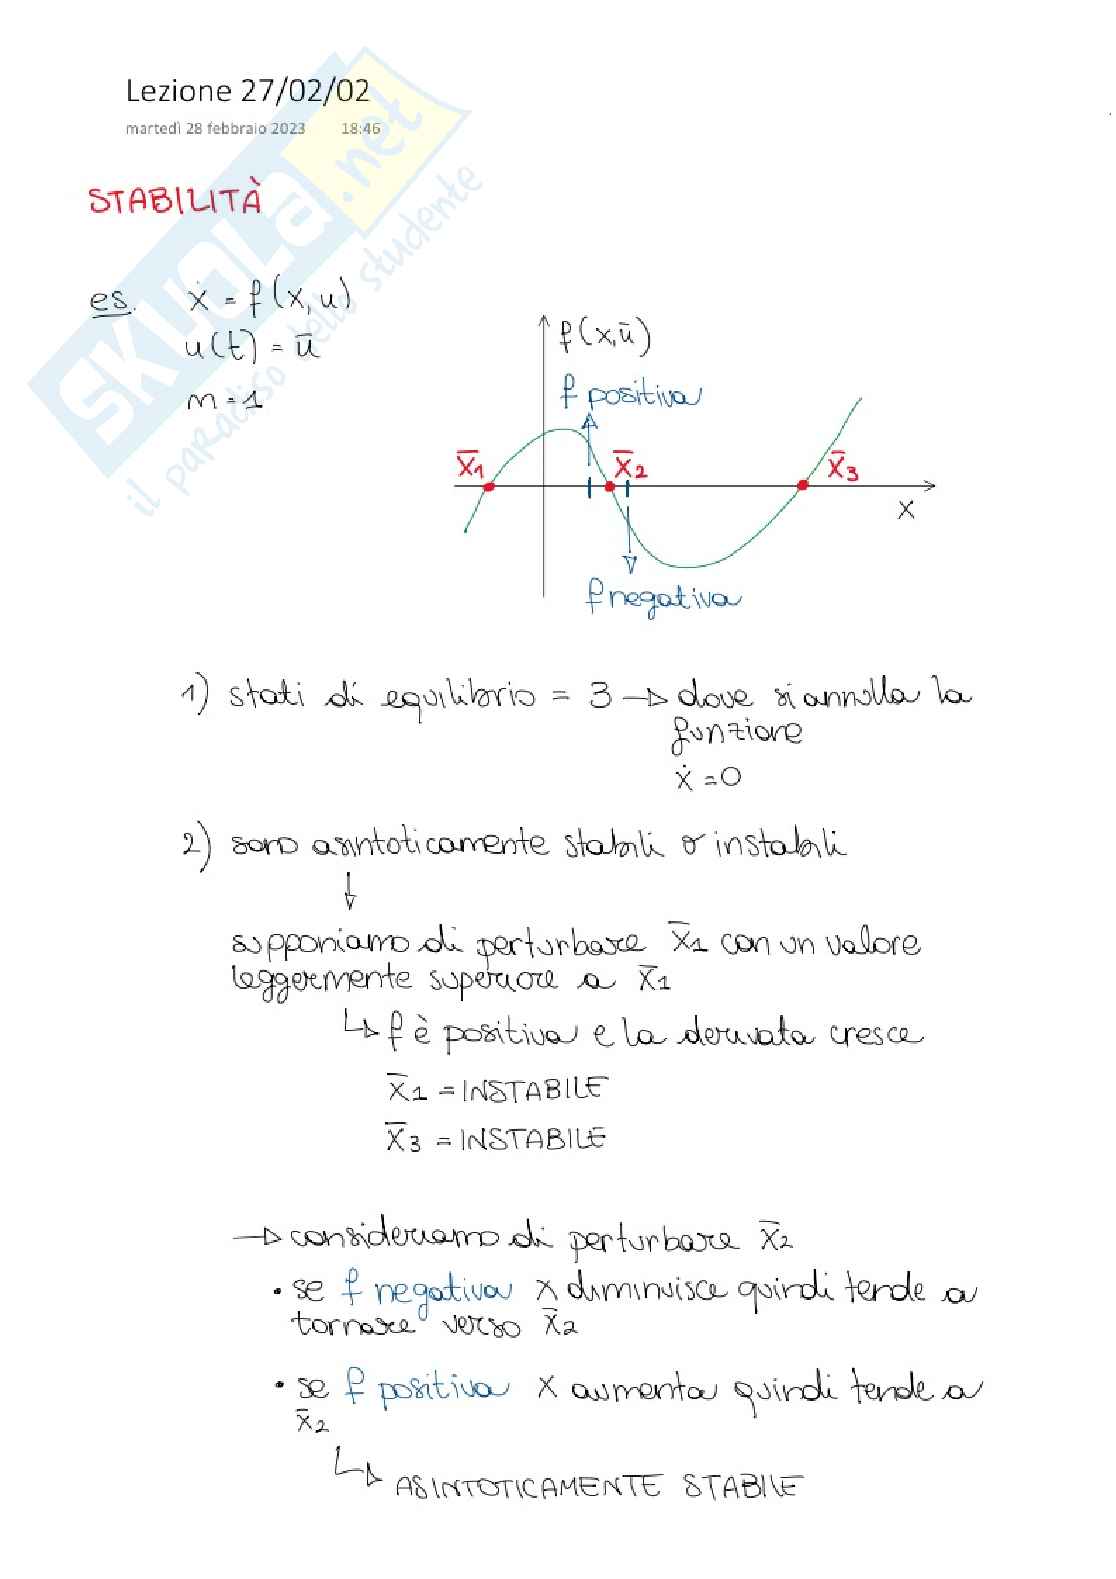 Lezione 27/02/02
martedì 28 febbraio 2023 18:46
SKUOLA.net
il paradiso dello studente
STABILITÀ
es. ẋ = f(x,u)
u(t) = ū
n=1
f(x,ū)
f positiva
x̄1 x̄2 x̄3
x
f negativa
1) stati di equilibrio = 3 → dove si annulla la
funzione
ẋ = 0
2) sono asintoticamente stabili o instabili
↓
supponiamo di perturbare x̄1 con un valore
leggermente superiore a x̄1
↳ f è positiva e la derivata cresce
x̄1 = INSTABILE
x̄3 = INSTABILE
→ consideriamo di perturbare x̄2
• se f negativa x diminuisce quindi tende a
tornare verso x̄2
• se f positiva x aumenta quindi tende a
x̄2
↳ ASINTOTICAMENTE STABILE